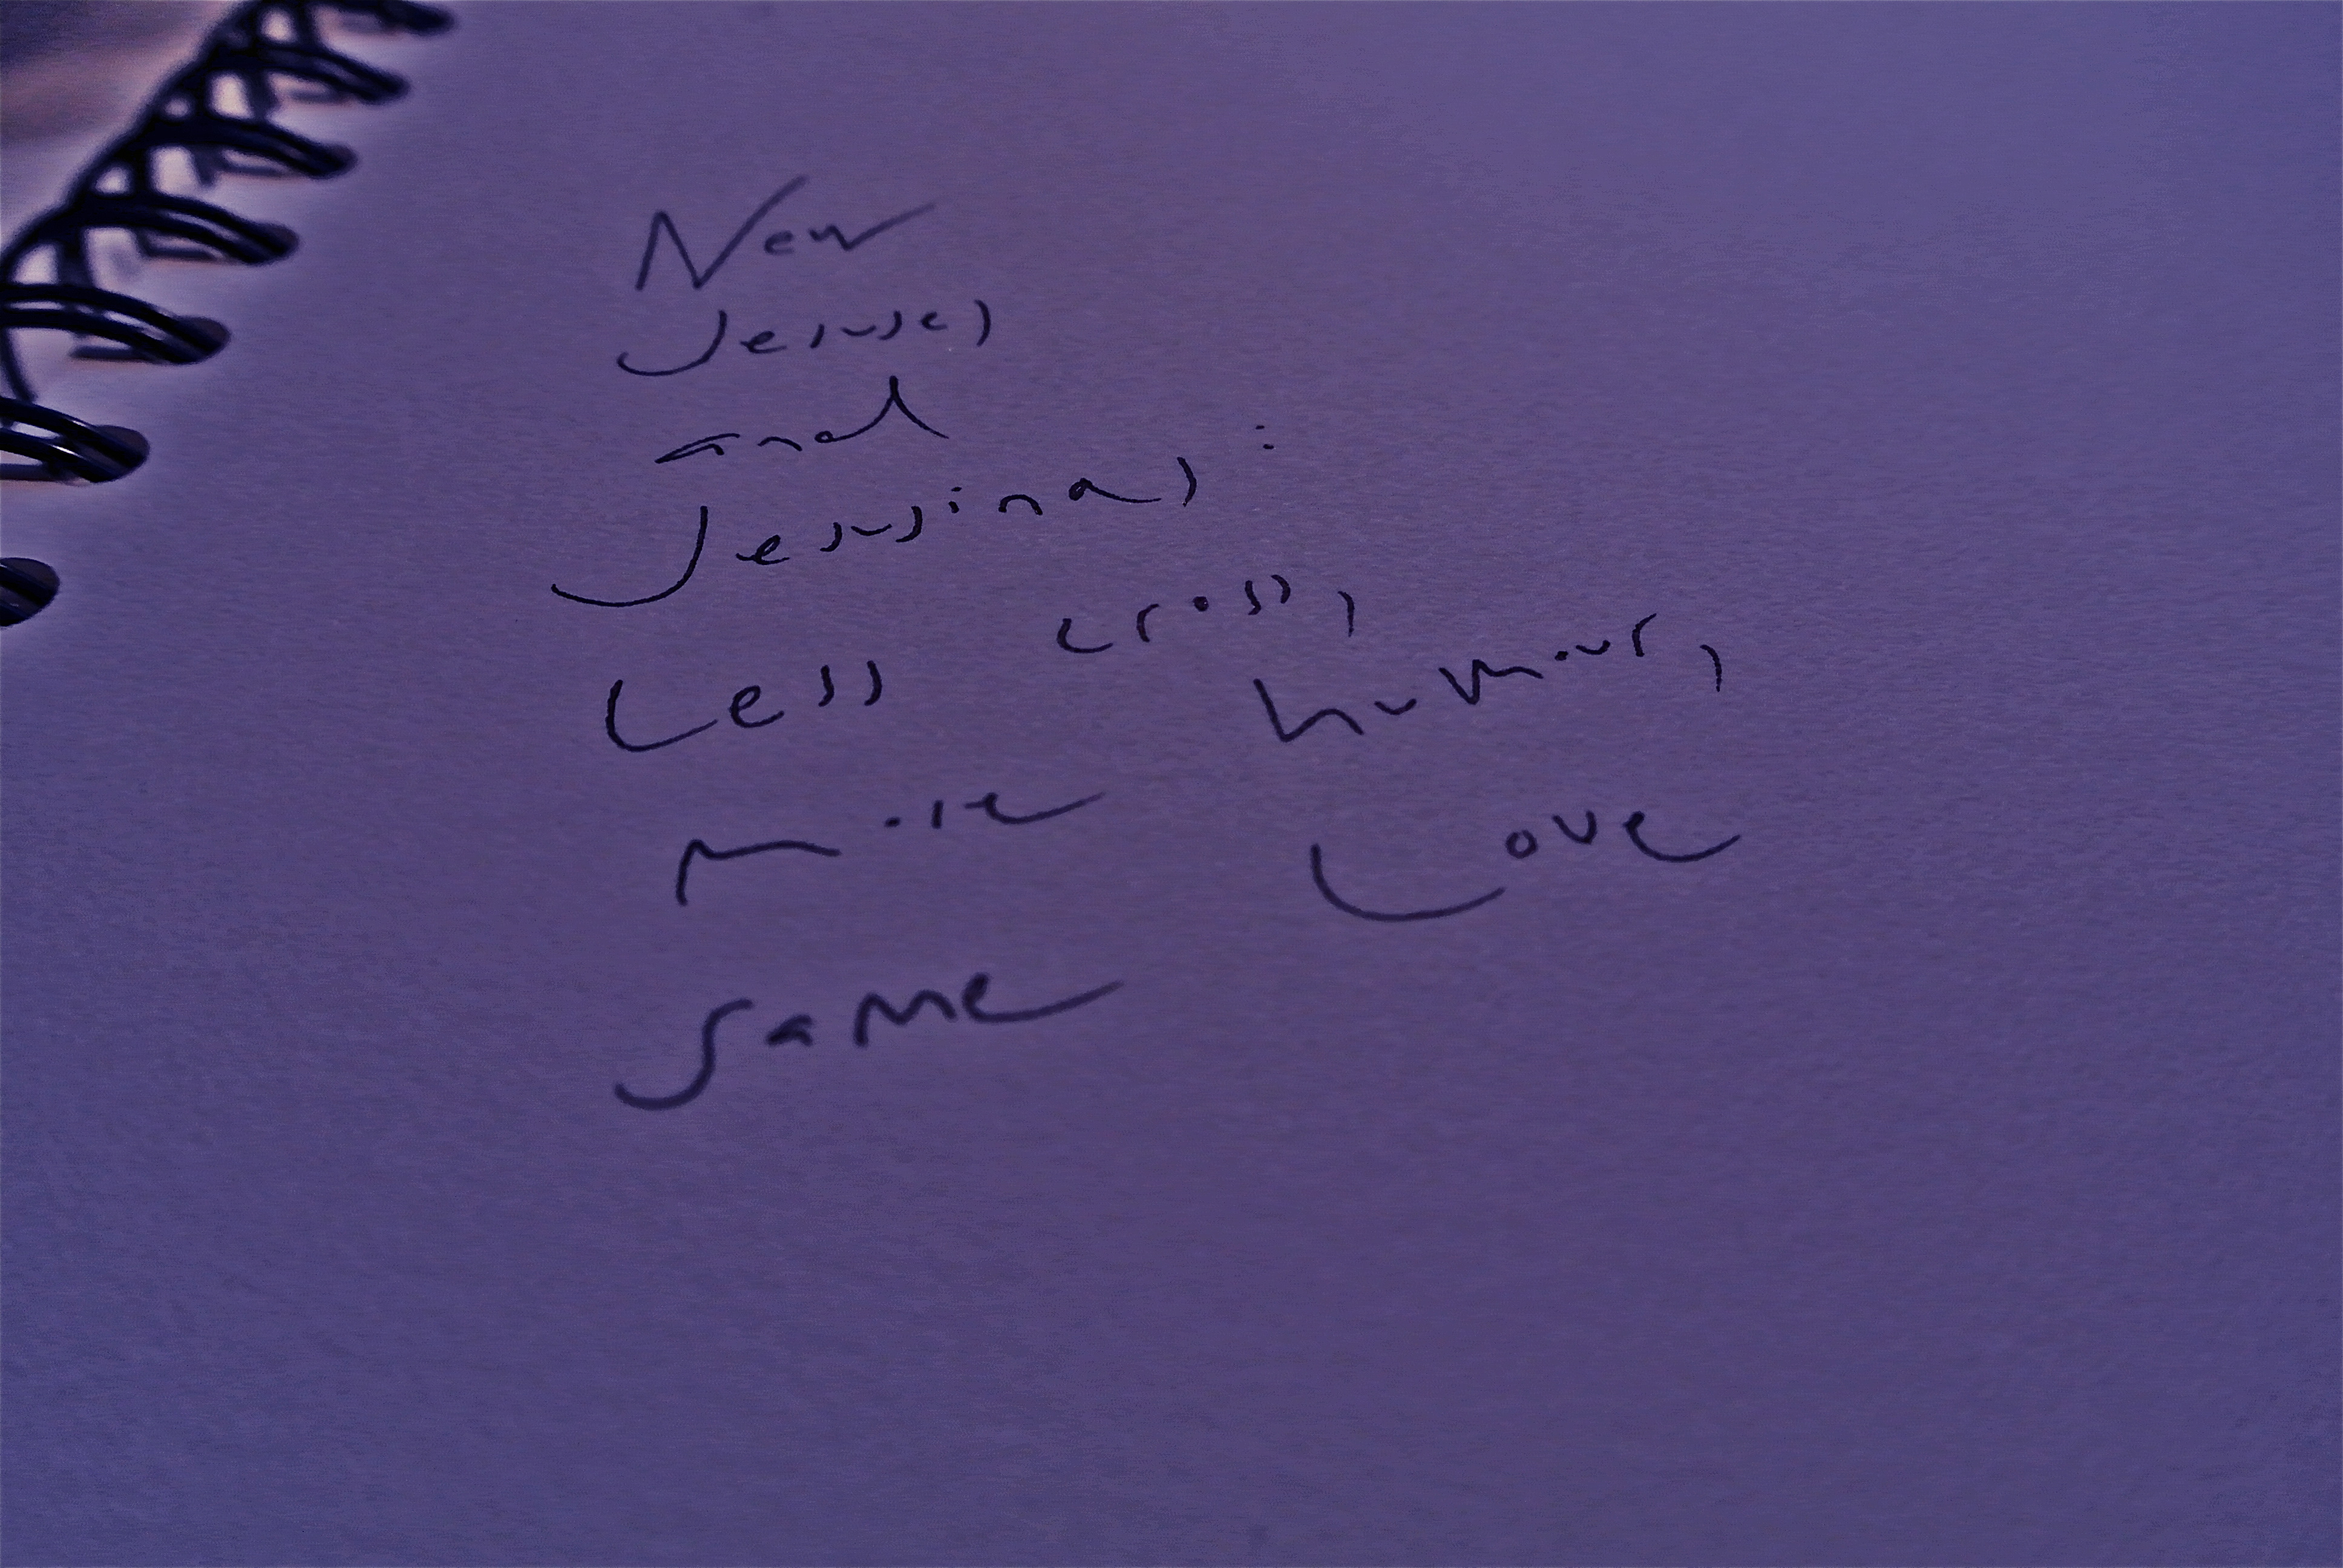 New
Jesuses
and
Jesusinas:
Less cross,
more humour,
same Love